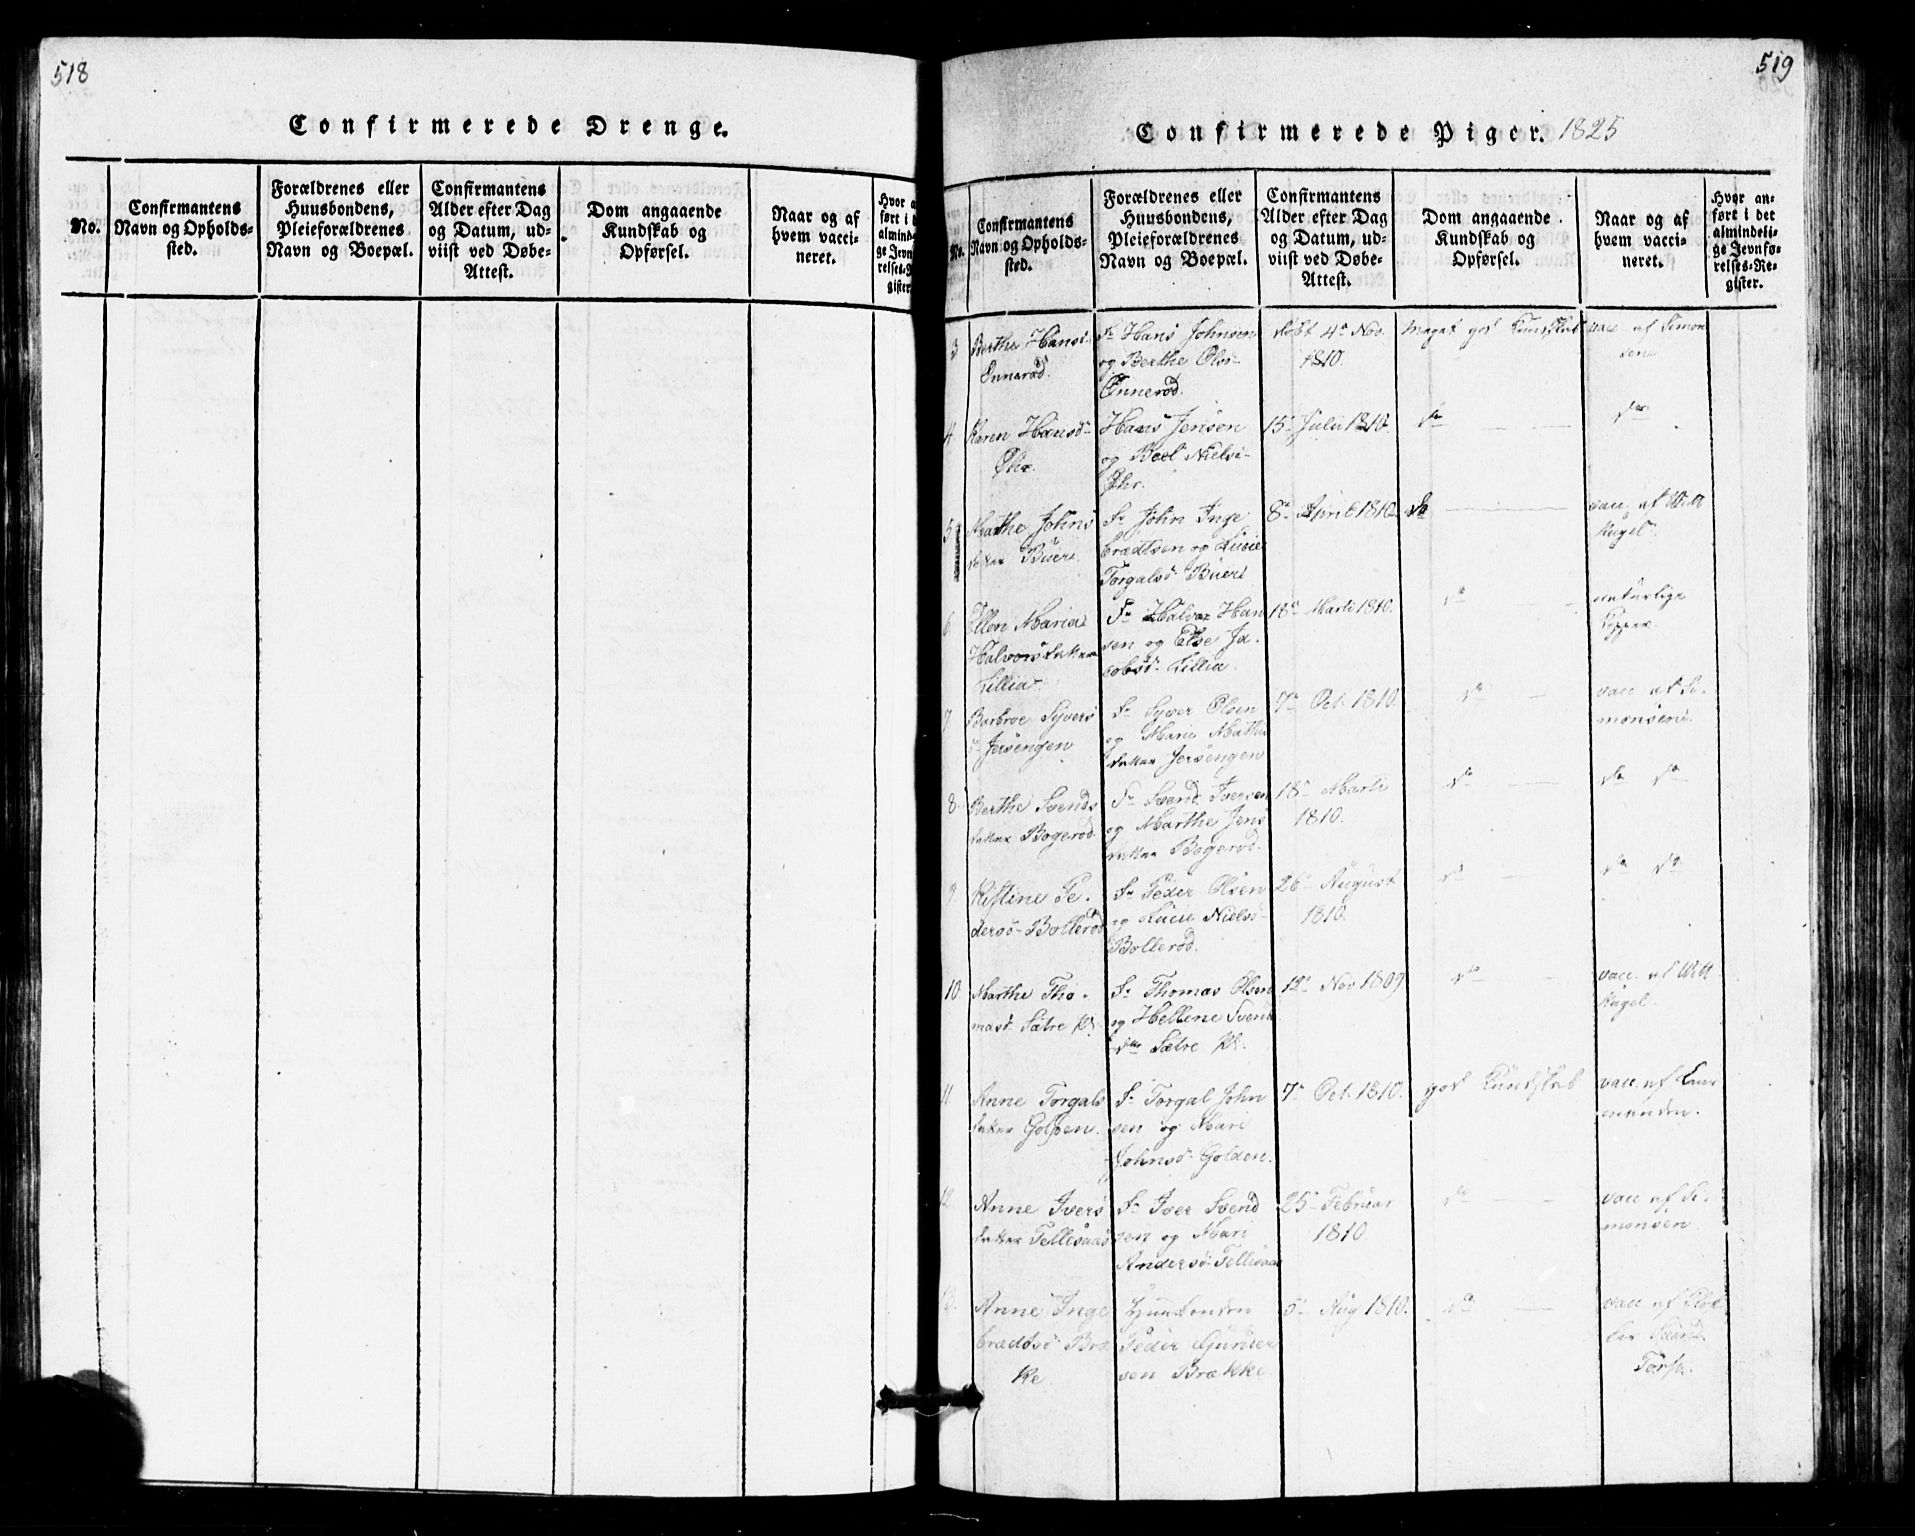 518
Confirmerede Drenge.
No.
Confirmantens
Navn og Opholds-
sted.
Forældrenes eller
Huusbondens,
Pleieforældrenes
Navn og Boepæl.
Confirmantens
Alder efter Dag
og Datum, ud-
viist ved Døbe-
Attest.
Dom angaaende
Kundskab og
Opførsel.
Naar og af
hvem vacci-
neret.
Hvor
ført i
almind-
ge Jevn
relses-
gister
519
Confirmerede Piger. 1825
No.
Confirmantens
Navn og Opholds-
sted.
Forældrenes eller
Huusbondens,
Pleieforældrenes
Navn og Boepæl.
Confirmantens
Alder efter Dag
og Datum, ud-
viist ved Døbe-
Attest.
Dom angaaende
Kundskab og
Opførsel.
Naar og af
hvem vacci-
neret.
Hvor an-
ført i det
almindeli-
ge Jevnfø-
relses-Re-
gister.
3
Berthe Hansd-
Onnerød.
Fr Hans Johnsen
og Berthe Olsd-
Onnerød.
døbt 4de Nov.
1810.
Meget god Kundskab
vacc. af Simon
sen
4
Karen Hansd-
Øhr.
Hans Jensen
og Boel Nielsd-
Øhr.
15- Julii 1810.
do
do
5
Marthe Johns
datter Buer.
Fr John Inge
brædtsen og Lucie
Torgalsd- Buer
8de April 1810
do
vacc. af Witt
Kugel.
6
Ellen Maria
Halvorsdatter
Lillia-
Fr Halvor Han
sen og Else Ja-
cobsd- Lillia.
18de Marti 1810.
do
naturlige
Kopper.
7
Barbroe Syvers
d- Jersengen
Fr Syver Olsen
og Marie Mathis
datter Jersengen
7de Oct. 1810.
do
vacc. af Si-
monsen.
8
Berthe Svends
datter Bogerød.
Fr Svend Iversen
og Marthe Jens
datter Bogerød.
18de Marti
1810.
do
do do
9
Kistine Pe-
dersd- Bollerød
Fr Peder Olsen
og Lucie Nielsd-
Bollerød.
26- August
1810.
do
do do
10
Marthe Tho-
masd. Sætre
Fr Thomas Olsen
og Hellene Svend
dtr Sætre
12te Nov 1809
do
vacc. af Witt
Kugel.
11
Anne Torgals
datter Golden.
Fr Torgal John
sen og Mari
Johnsd- Golden.
7de Oct. 1810.
god Kundskab
vacc. af
manden.
12
Anne Ivers
datter Tellesaas
Fr Iver Svend
sen og Mari
Andersd- Tellesaas
25- Februar
1810.
do
vacc af Si-
monsen.
13
Anne Inge
brædtsd- Bræ
ke.
Huusbonden
Peder Gunder
sen Brække
5te Aug 1810.
do
vacc af Klok-
ker
Torp.